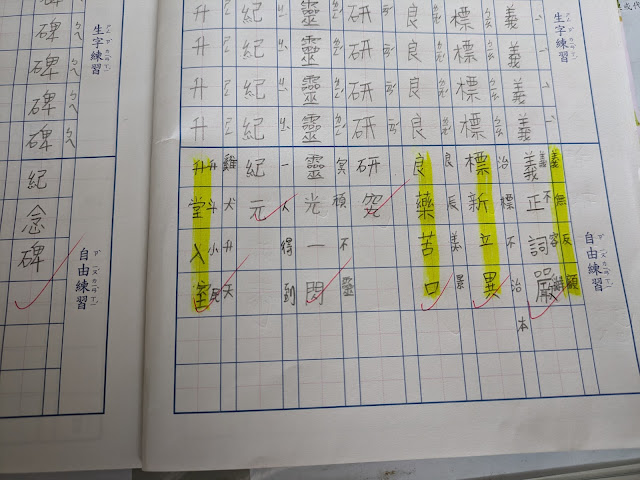 生字練習
義義義義
標標標標
良良良良
研研研研
靈靈靈靈
紀紀紀紀
升升升升
自由練習
義無反顧
義不容辭
義正詞嚴
治標不治本
標新立異
良辰美景
良藥苦口
研究
冥頑不靈
靈光一閃
一人得到
紀元
雞犬升天
升斗小民
升堂入室
生字練習
碑碑碑碑
自由練習
紀念碑